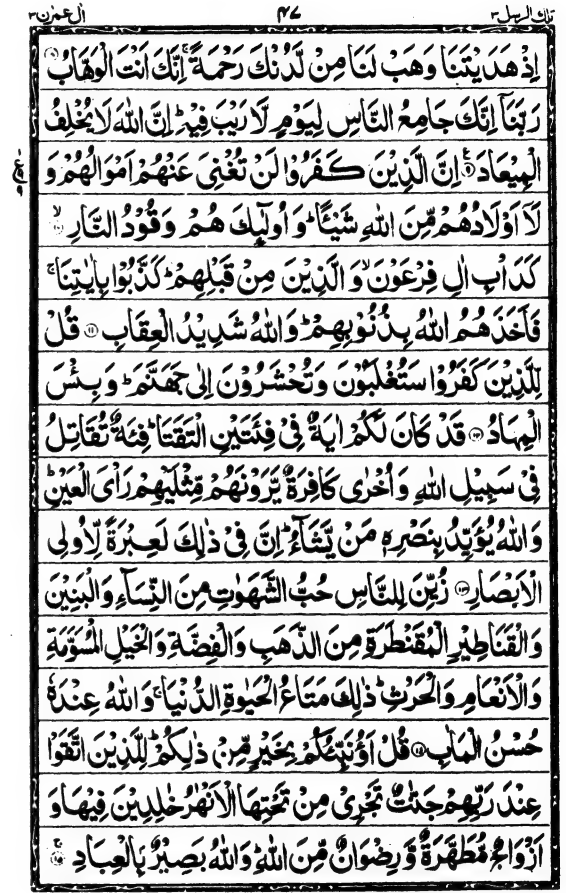 تلك الرسل ٣ ٤٧ اٰل عمرٰن ٣
اِذْ هَدَيْتَنَا وَهَبْ لَنَا مِنْ لَّدُنْكَ رَحْمَةً ۚ اِنَّكَ اَنْتَ الْوَهَّابُ ۝٨
رَبَّنَاۤ اِنَّكَ جَامِعُ النَّاسِ لِيَوْمٍ لَّا رَيْبَ فِيْهِ ؕ اِنَّ اللّٰهَ لَا يُخْلِفُ
الْمِيْعَادَ ۝٩ اِنَّ الَّذِيْنَ كَفَرُوْا لَنْ تُغْنِيَ عَنْهُمْ اَمْوَالُهُمْ وَ
لَاۤ اَوْلَادُهُمْ مِّنَ اللّٰهِ شَيْـًٔا ؕ وَ اُولٰٓئِكَ هُمْ وَقُوْدُ النَّارِ ۙ۝١٠
كَدَاْبِ اٰلِ فِرْعَوْنَ ۙ وَ الَّذِيْنَ مِنْ قَبْلِهِمْ ؕ كَذَّبُوْا بِاٰيٰتِنَا ۚ
فَاَخَذَهُمُ اللّٰهُ بِذُنُوْبِهِمْ ؕ وَ اللّٰهُ شَدِيْدُ الْعِقَابِ ۝١١ قُلْ
لِّلَّذِيْنَ كَفَرُوْا سَتُغْلَبُوْنَ وَ تُحْشَرُوْنَ اِلٰى جَهَنَّمَ ؕ وَ بِئْسَ
الْمِهَادُ ۝١٢ قَدْ كَانَ لَكُمْ اٰيَةٌ فِيْ فِئَتَيْنِ الْتَقَتَا ؕ فِئَةٌ تُقَاتِلُ
فِيْ سَبِيْلِ اللّٰهِ وَ اُخْرٰى كَافِرَةٌ يَّرَوْنَهُمْ مِّثْلَيْهِمْ رَاْيَ الْعَيْنِ ؕ
وَ اللّٰهُ يُؤَيِّدُ بِنَصْرِهٖ مَنْ يَّشَآءُ ؕ اِنَّ فِيْ ذٰلِكَ لَعِبْرَةً لِّاُولِي
الْاَبْصَارِ ۝١٣ زُيِّنَ لِلنَّاسِ حُبُّ الشَّهَوٰتِ مِنَ النِّسَآءِ وَ الْبَنِيْنَ
وَ الْقَنَاطِيْرِ الْمُقَنْطَرَةِ مِنَ الذَّهَبِ وَ الْفِضَّةِ وَ الْخَيْلِ الْمُسَوَّمَةِ
وَ الْاَنْعَامِ وَ الْحَرْثِ ؕ ذٰلِكَ مَتَاعُ الْحَيٰوةِ الدُّنْيَا ۚ وَ اللّٰهُ عِنْدَهٗ
حُسْنُ الْمَاٰبِ ۝١٤ قُلْ اَؤُنَبِّئُكُمْ بِخَيْرٍ مِّنْ ذٰلِكُمْ ؕ لِلَّذِيْنَ اتَّقَوْا
عِنْدَ رَبِّهِمْ جَنّٰتٌ تَجْرِيْ مِنْ تَحْتِهَا الْاَنْهٰرُ خٰلِدِيْنَ فِيْهَا وَ
اَزْوَاجٌ مُّطَهَّرَةٌ وَّ رِضْوَانٌ مِّنَ اللّٰهِ ؕ وَ اللّٰهُ بَصِيْرٌۢ بِالْعِبَادِ ۚ۝١٥